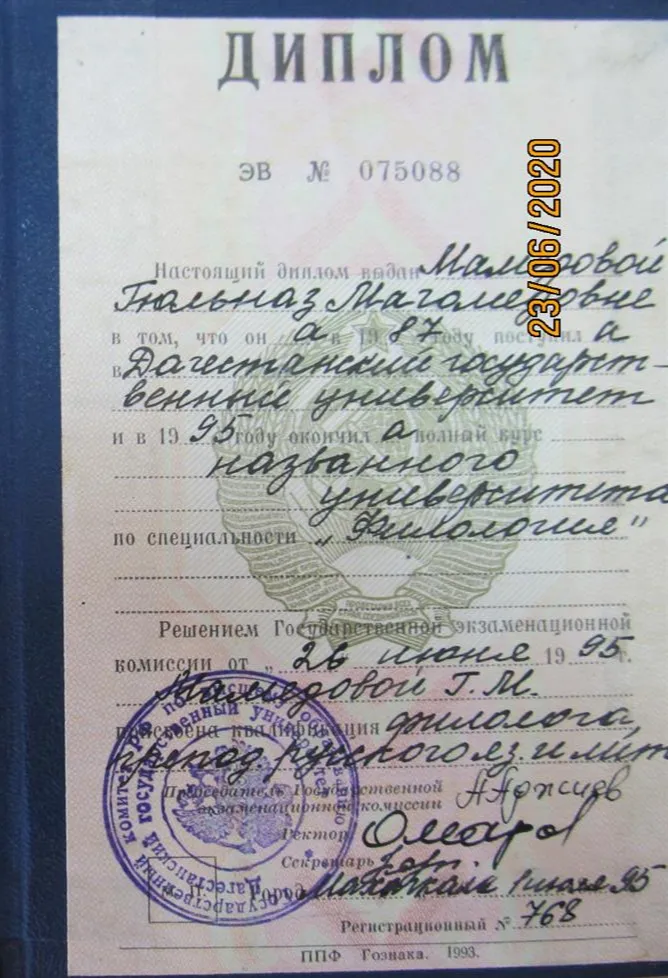 ДИПЛОМ
ЭВ № 075088
23/06/2020
Настоящий диплом выдан Мамедовой
Гюльназ Магомедовне
в том, что он а в 1987 году поступил а
в Дагестанский государст-
венный университет
и в 1995 году окончил а полный курс
названного
университета
по специальности „Филология"
Решением Государственной экзаменационной
комиссии от „ 26 июня 1995 г.
Мамедовой Г.М.
присвоена квалификация филолога,
препод. русского яз. и лит
Председатель Государственной
экзаменационной комиссии
Ректор Омаров
Секретарь
Город Махачкала 1 июля 95
Регистрационный № 768
ППФ Гознака. 1993.
Государственный комитет РФ по высшему образованию
Дагестанский государственный университет